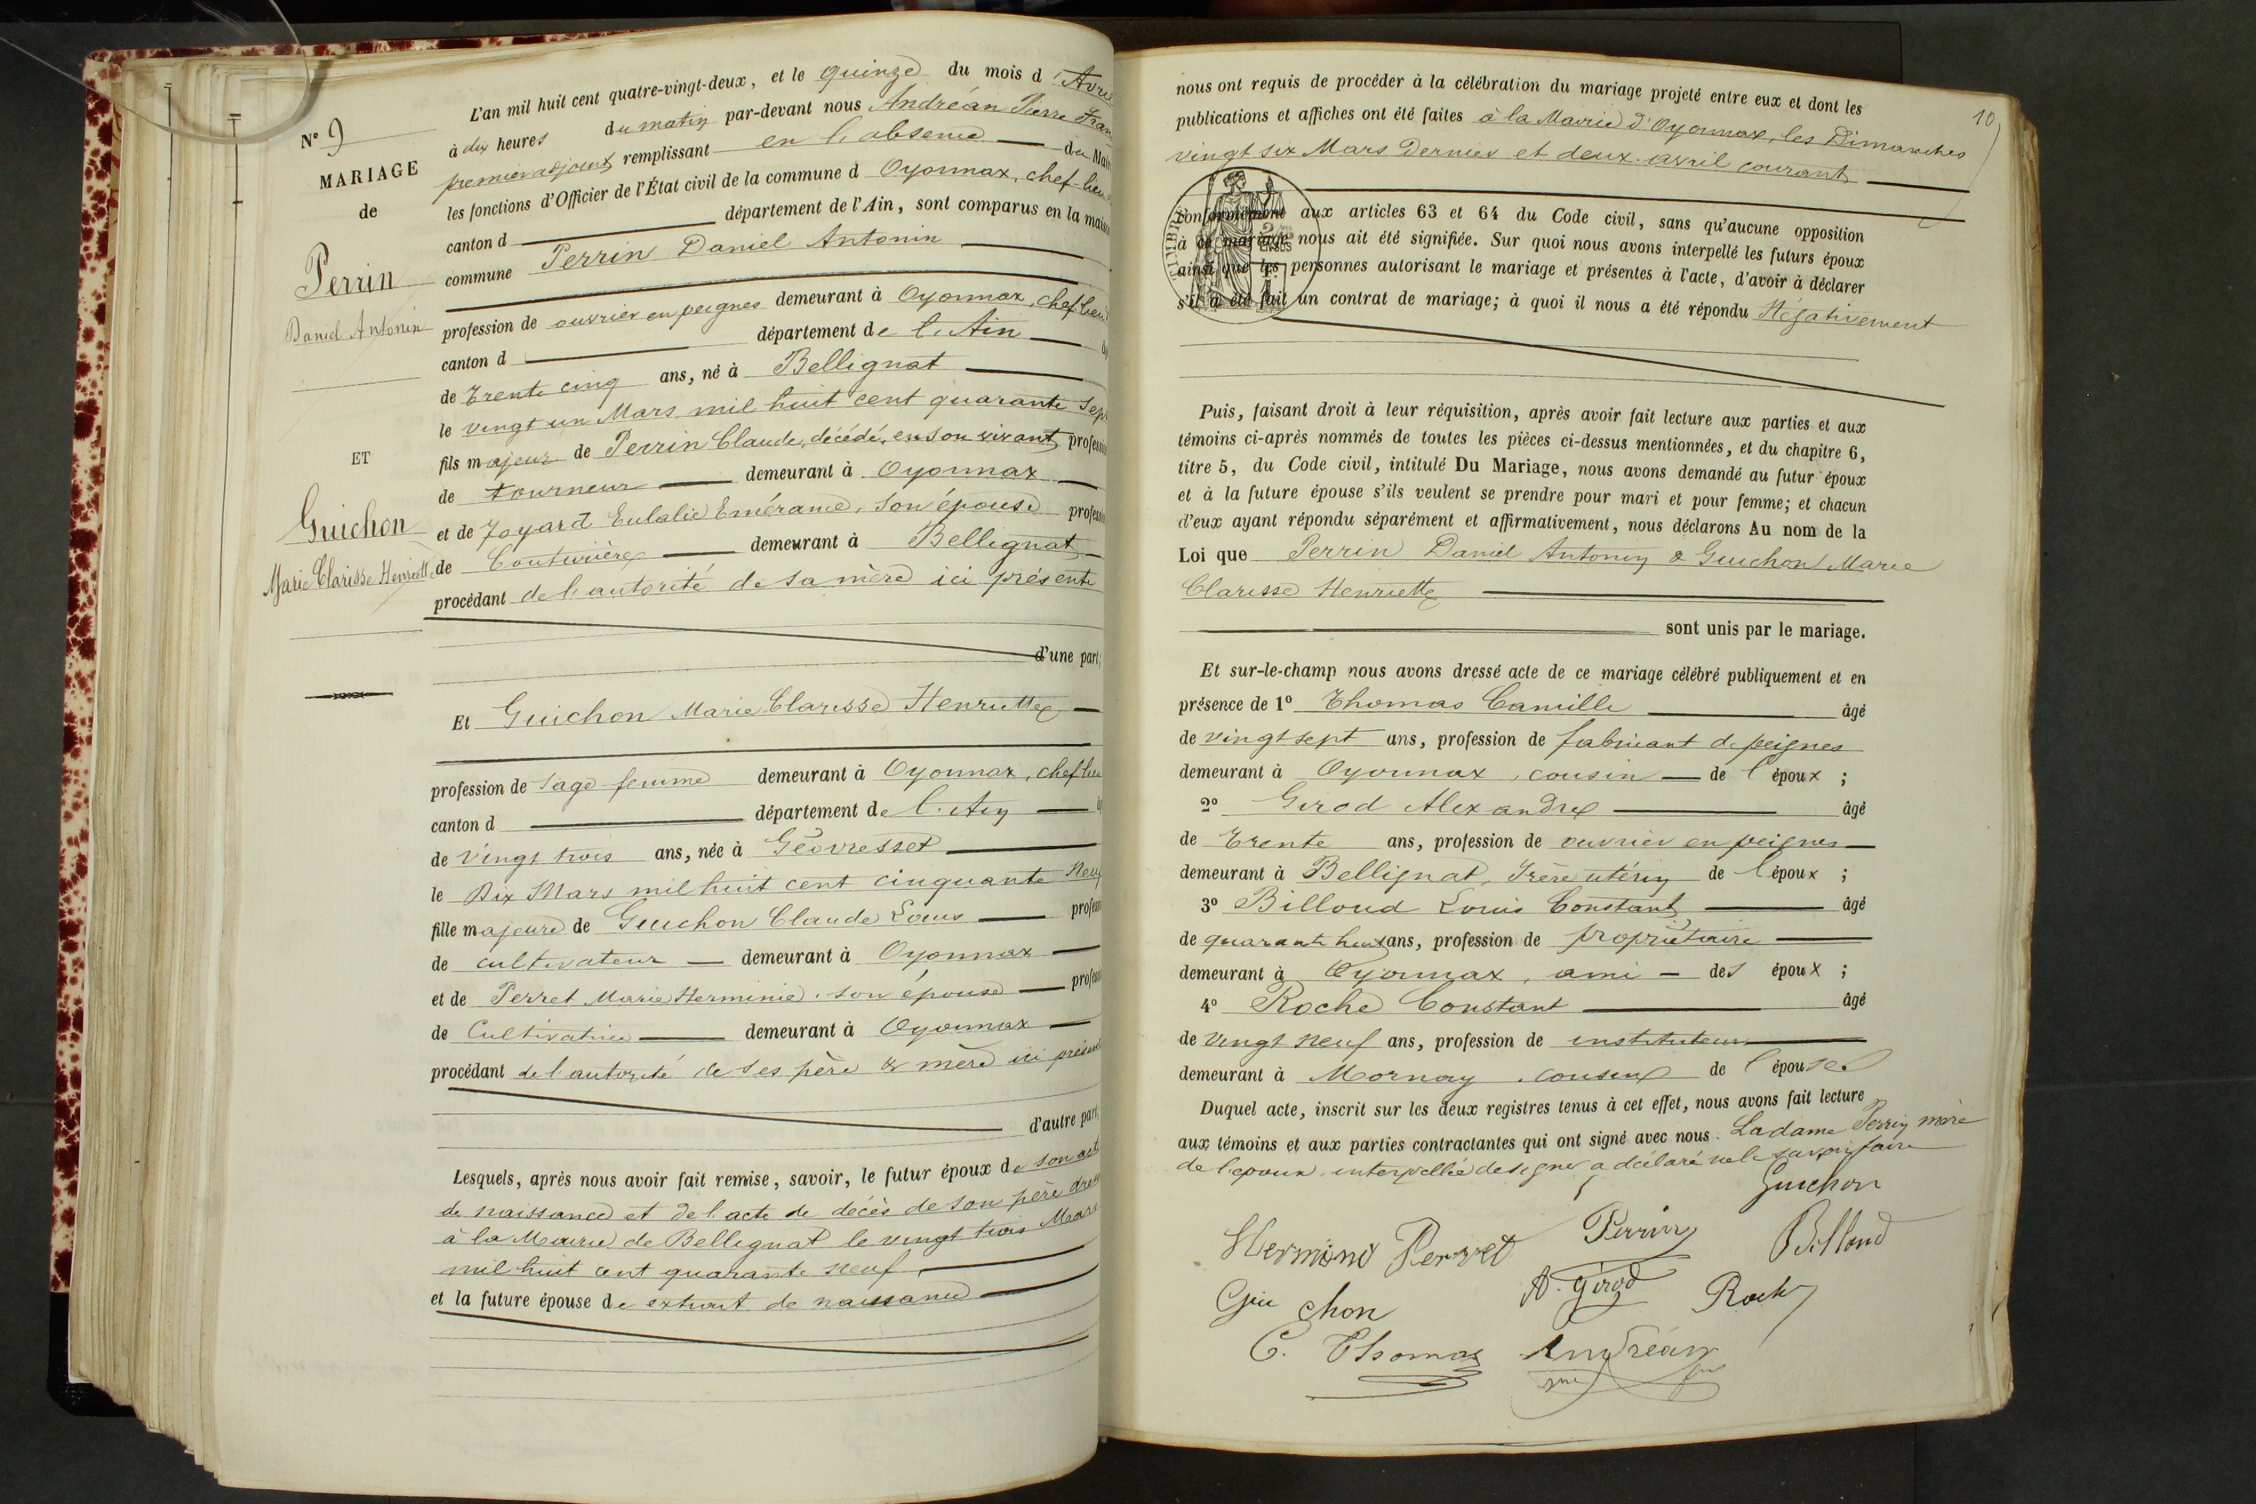 N° 9
MARIAGE
de
Perrin
Daniel Antonin
ET
Guichon
Marie Clarisse Henriette
L'an mil huit cent quatre-vingt-deux, et le quinze du mois d'Avril
à dix heures du matin par-devant nous Andréan Pierre Fran
premier adjoint, remplissant en l'absence du Mai
les fonctions d'Officier de l'État civil de la commune d Oyonnax, chef-lieu
canton d département de l'Ain, sont comparus en la maiso
commune Perrin Daniel Antonin
profession de ouvrier en peignes demeurant à Oyonnax, chef lieu
canton d département de l'Ain
de trente cinq ans, né à Bellignat
le vingt un Mars mil huit cent quarante sept
fils majeur de Perrin Claude, décédé, en son vivant professio
de tourneur demeurant à Oyonnax
et de Joyard Eulalie Emérance, son épouse professio
de Couturière demeurant à Bellignat
procédant de l'autorité de sa mère ici présente
d'une part;
Et Guichon Marie Clarisse Henriette
profession de sage femme demeurant à Oyonnax, chef lieu
canton d département de l'Ain
de vingt trois ans, née à Géovresset
le Dix Mars mil huit cent cinquante neuf
fille majeure de Guichon Claude Louis profess
de cultivateur demeurant à Oyonnax
et de Perret Marie Herminie, son épouse profess
de Cultivatrice demeurant à Oyonnax
procédant de l'autorité de ses père & mère ici présent
d'autre part,
Lesquels, après nous avoir fait remise, savoir, le futur époux de son acte
de naissance et de l'acte de décès de son père dressé
à la Mairie de Bellignat le vingt trois Mars
mil huit cent quarante neuf,
et la future épouse de extrait de naissance
10
nous ont requis de procéder à la célébration du mariage projeté entre eux et dont les
publications et affiches ont été faites à la Mairie d'Oyonnax, les Dimanches
vingt six Mars dernier et deux avril courant
conformément aux articles 63 et 64 du Code civil, sans qu'aucune opposition
à ce mariage nous ait été signifiée. Sur quoi nous avons interpellé les futurs époux
ainsi que les personnes autorisant le mariage et présentes à l'acte, d'avoir à déclarer
s'il a été fait un contrat de mariage; à quoi il nous a été répondu Négativement
Puis, faisant droit à leur réquisition, après avoir fait lecture aux parties et aux
témoins ci-après nommés de toutes les pièces ci-dessus mentionnées, et du chapitre 6,
titre 5, du Code civil, intitulé Du Mariage, nous avons demandé au futur époux
et à la future épouse s'ils veulent se prendre pour mari et pour femme; et chacun
d'eux ayant répondu séparément et affirmativement, nous déclarons Au nom de la
Loi que Perrin Daniel Antonin & Guichon Marie
Clarisse Henriette
sont unis par le mariage.
Et sur-le-champ nous avons dressé acte de ce mariage célébré publiquement et en
présence de 1° Thomas Camille âgé
de vingt sept ans, profession de fabricant de peignes
demeurant à Oyonnax, cousin de l'époux ;
2° Girod Alexandre âgé
de trente ans, profession de ouvrier en peignes
demeurant à Bellignat, frère utérin de l'époux ;
3° Billoud Louis Constant âgé
de quarante huit ans, profession de propriétaire
demeurant à Oyonnax, ami des époux ;
4° Roche Constant âgé
de vingt neuf ans, profession de instituteur
demeurant à Mornay, cousin de l'épouse
Duquel acte, inscrit sur les deux registres tenus à cet effet, nous avons fait lecture
aux témoins et aux parties contractantes qui ont signé avec nous. La dame Perrin mère
de l'époux interpellée de signer a déclaré ne le savoir faire
Guichon
Hermine Perret Perrin Billoud
Guichon A. Girod Roche
C. Thomas Andréan